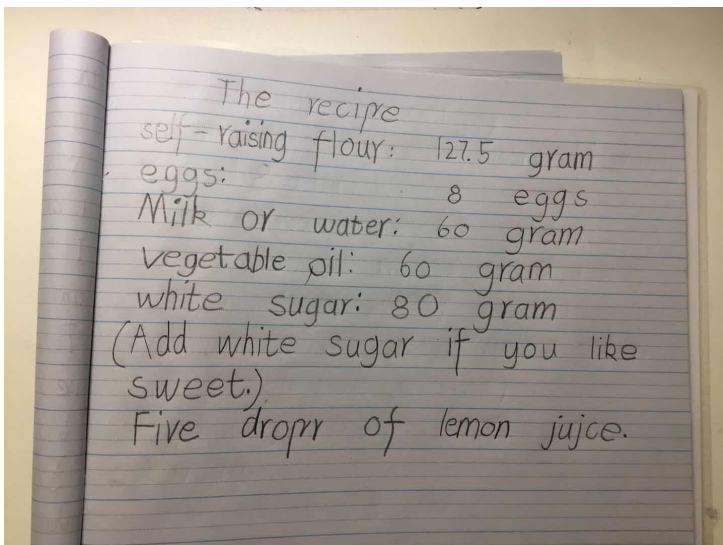 The recipe
self-raising flour: 127.5 gram
eggs: 8 eggs
Milk or water: 60 gram
vegetable oil: 60 gram
white sugar: 80 gram
(Add white sugar if you like
sweet.)
Five dropr of lemon jujce.